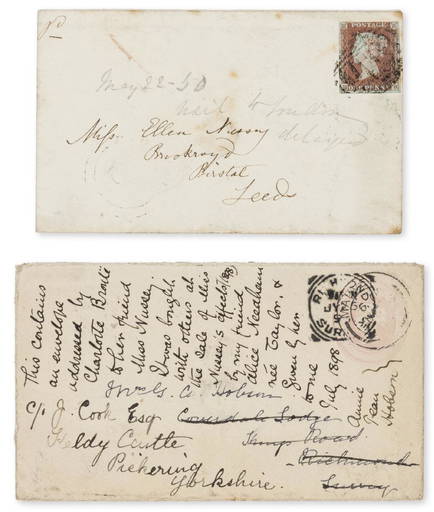 pd
POSTAGE
ONE PENNY
May 22-50
Miss Ellen Nussey
Brookroyd
Birstal
Leeds
This contains
an envelope
addressed by
Charlotte Brontë
to her friend
Miss Nussey.
It was bought
with others at
the sale of Miss
Nussey's effects/98
by my friend
Alice Needham
née Taylor, &
given by her
to me
July 1898
Annie
Jean
Hobson
Mrs G. A. Hobson
c/o J. Cook Esq
Lodge
Keldy Castle
Kings Road
Pickering
Richmond
Yorkshire.
Surrey
RICHMOND
SURREY